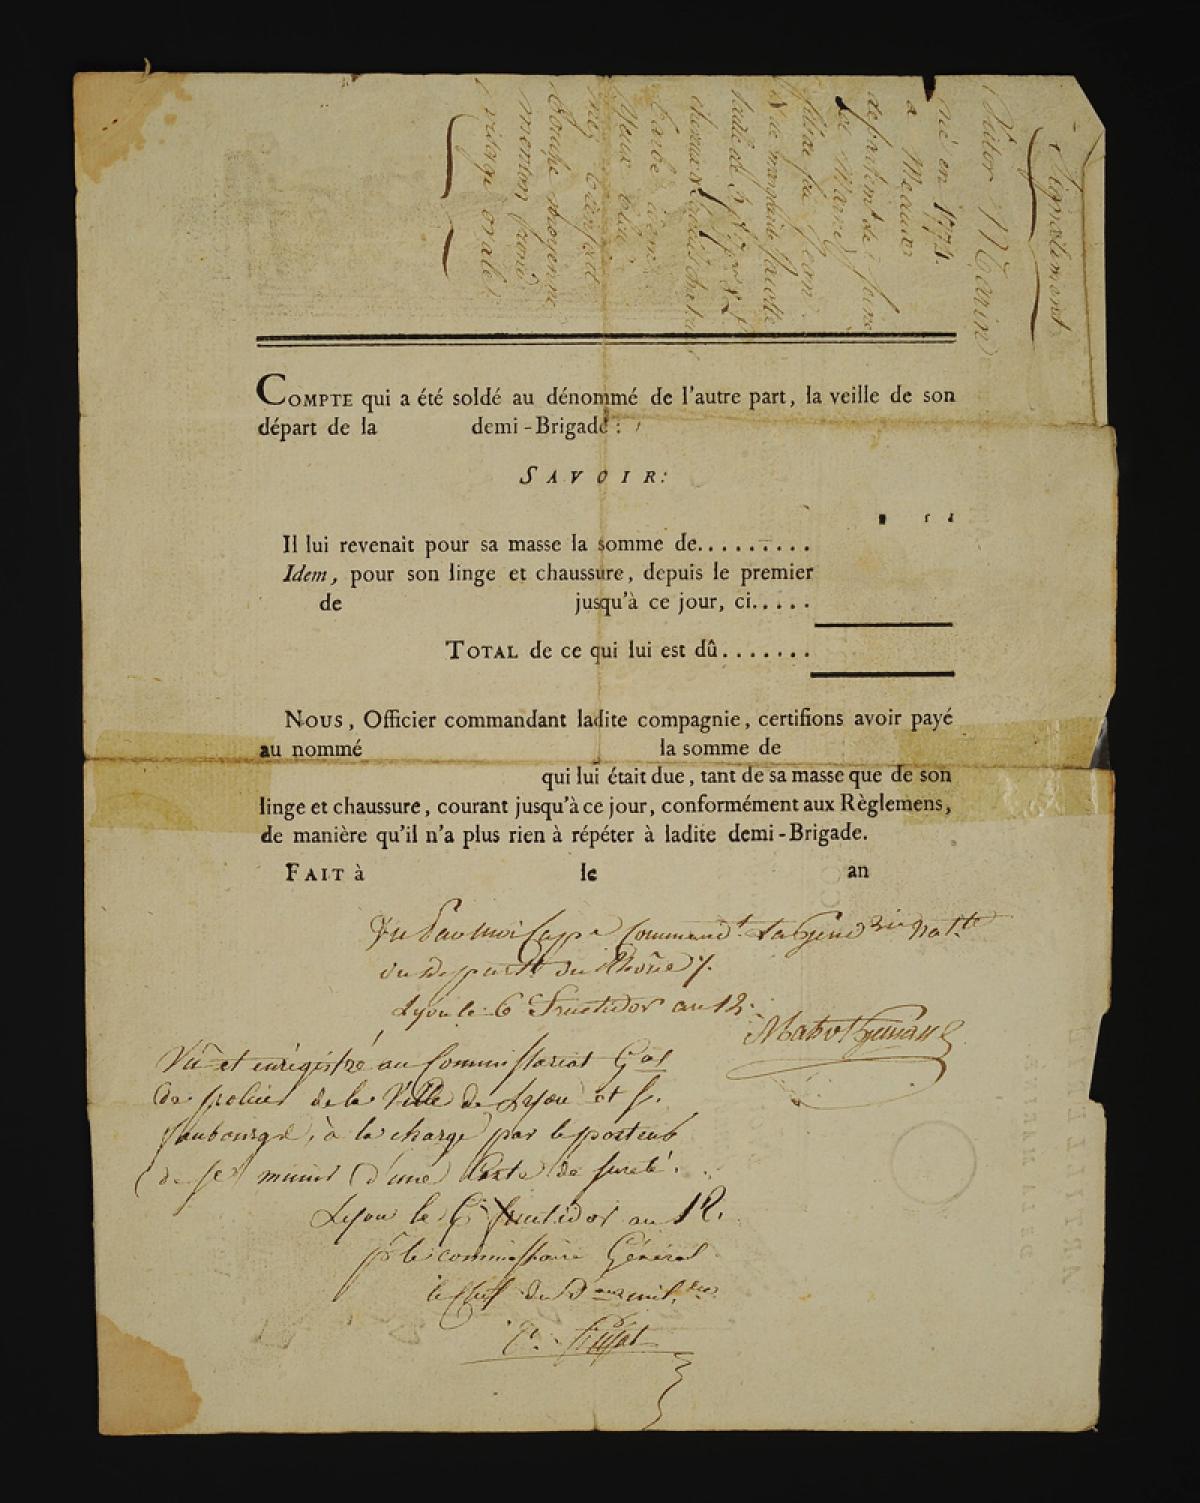 Signalement
Victor Marin
né en 1774.
a Meaux
departemt. de Seine
et Marne
fils de feu Jean
& de marguerite
taille de
cheveux & sourcils
barbe idem
yeux bleu
nez
bouche moyenne
menton rond
visage ovale.
COMPTE qui a été soldé au dénommé de l'autre part, la veille de son
départ de la demi-Brigade :
SAVOIR:
Il lui revenait pour sa masse la somme de.........
Idem, pour son linge et chaussure, depuis le premier
de jusqu'à ce jour, ci.....
TOTAL de ce qui lui est dû.......
NOUS, Officier commandant ladite compagnie, certifions avoir payé
au nommé la somme de
qui lui était due, tant de sa masse que de son
linge et chaussure, courant jusqu'à ce jour, conformément aux Règlemens,
de manière qu'il n'a plus rien à répéter à ladite demi-Brigade.
FAIT à le an
Vu Par Moi Capne Commandt. La Gendrie natle
du Départt du Rhône
Lyon le 6 Fructidor an 12.
Vu et enrégistré au Commissariat Gal
de police de la Ville de Lyon et f.
faubourgs, à la charge par le porteur
de se munir d'une Carte de sureté.
Lyon le 6 fructidor an 12.
pr le commissaire Général
le Chef du